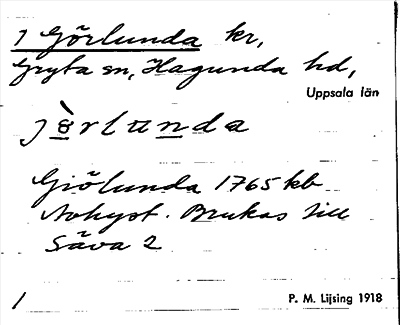 1 Görlunda kr,
Gryta sn, Hagunda hd,
Uppsala län
jö̀rlunda
Giölunda 1765 kb
Avhyst. Brukas till
Säva 2
1
P. M. Lijsing 1918